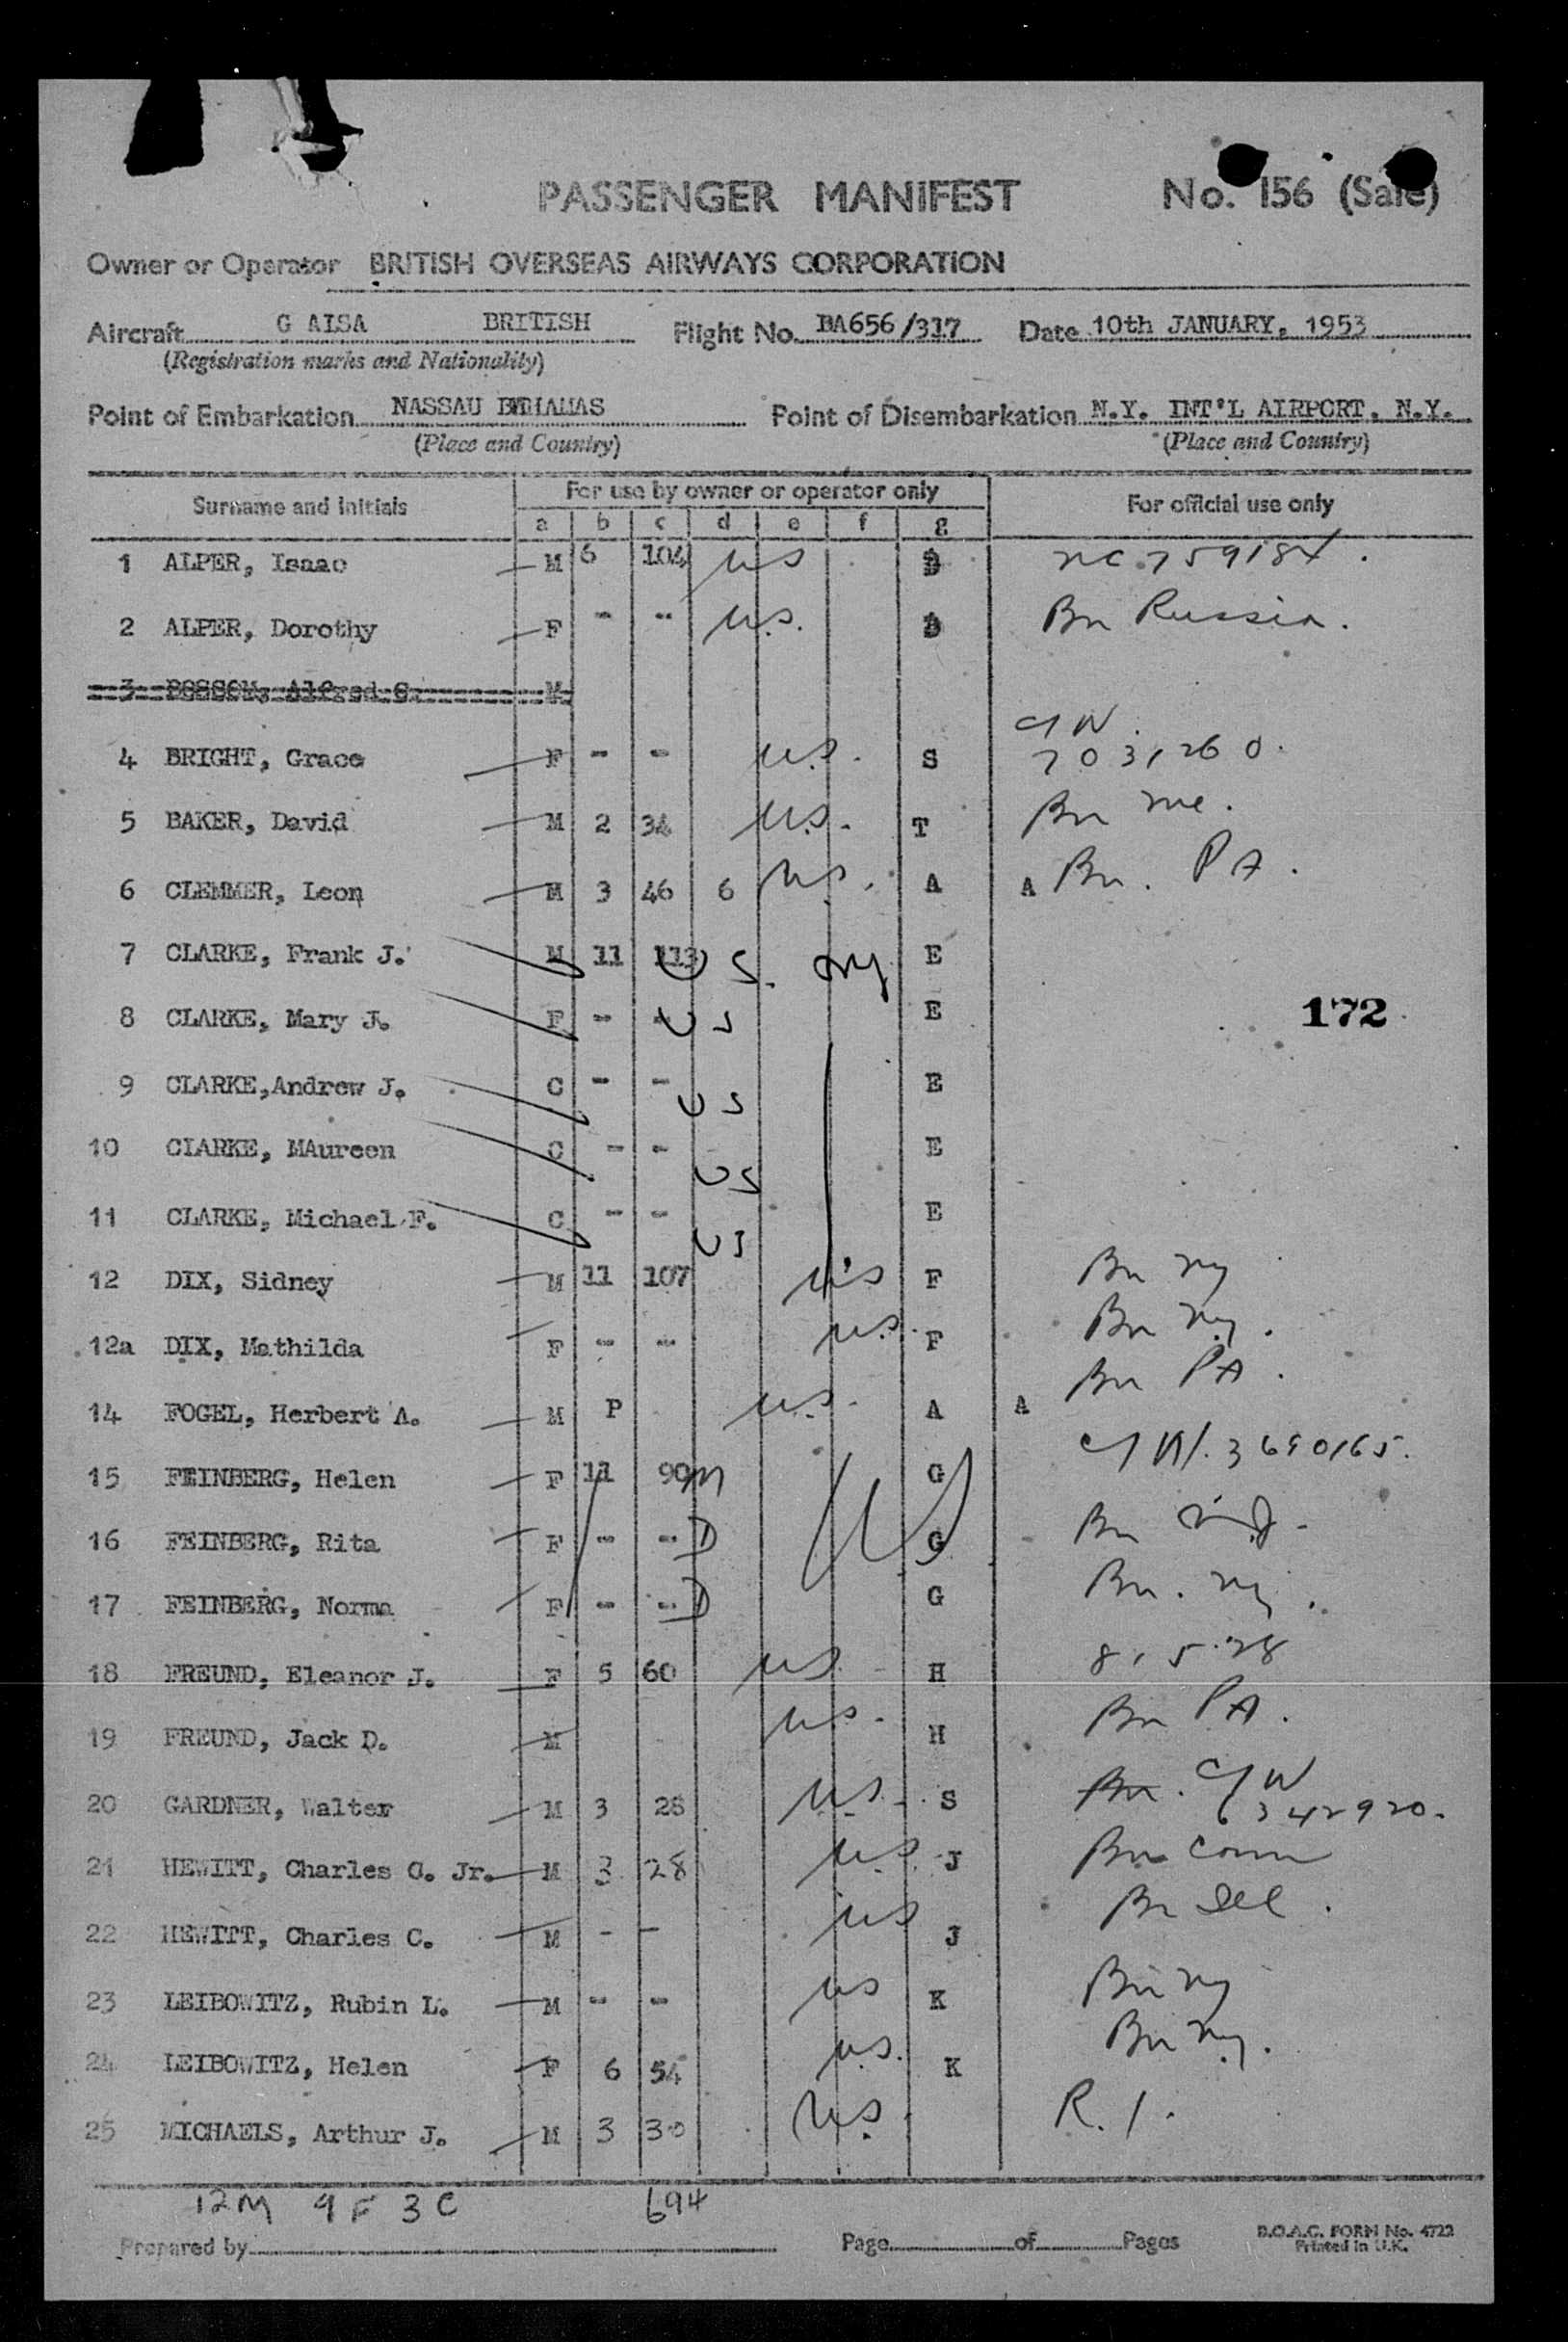 PASSENGER MANIFEST No. 156 (Sale)
Owner or Operator BRITISH OVERSEAS AIRWAYS CORPORATION
Aircraft G AISA BRITISH Flight No. BA656/317 Date 10th JANUARY, 1953
(Registration marks and Nationality)
Point of Embarkation NASSAU Point of Disembarkation N.Y. INT'L AIRPORT, N.Y.
(Place and Country) (Place and Country)
Surname and Initials For use by owner or operator only For official use only
a b c d e f g
1 ALPER, Isaac M 6 104 US
2 ALPER, Dorothy F - - U.S. Bn Russia.
3 M
C/N.
4 BRIGHT, Grace F - - U.S. S 7031260.
5 BAKER, David M 2 34 U.S. T Bn Me.
6 CLEMMER, Leon M 3 46 6 U.S. A A Bn. PA.
7 CLARKE, Frank J. M 11 113 US. NY E
8 CLARKE, Mary J. F - - US E 172
9 CLARKE,Andrew J. C - - US E
10 CLARKE, MAureen C - - US E
11 CLARKE, Michael F. C - - US E
12 DIX, Sidney M 11 107 US F Bn NY
12a DIX, Mathilda F - - U.S. F Bn N.Y.
14 FOGEL, Herbert A. M P U.S. A A Bn PA.
15 FEINBERG, Helen F 11 90 M US G C/N. 3690165.
16 FEINBERG, Rita F - - D G Bn
17 FEINBERG, Norma F - - D G Bn. NY.
18 FREUND, Eleanor J. F 5 60 US H 8.5.28
19 FREUND, Jack D. M U.S. H Bn PA.
20 GARDNER, Walter M 3 28 U.S. S Bn. C/N
6342920.
21 HEWITT, Charles C. Jr. M 3 28 U.S. J Bn Conn
22 HEWITT, Charles C. M - - US J Bn Del.
23 LEIBOWITZ, Rubin L. M - - US K Bn NY
24 LEIBOWITZ, Helen F 6 54 U.S. K Bn N.Y.
25 MICHAELS, Arthur J. M 3 30 U.S. R.I.
12M 9F 3C 694
Prepared by Page of Pages B.O.A.C. FORM No. 4722
Printed in U.K.